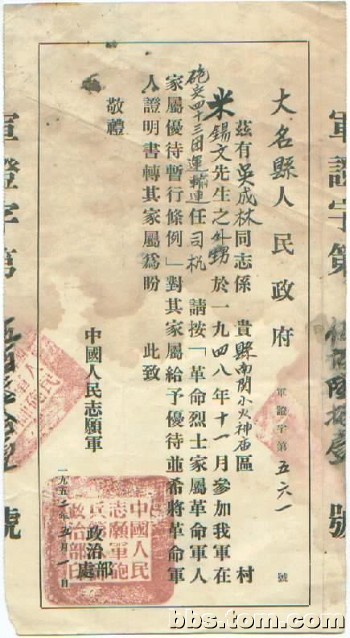 軍證字第 號
大名縣人民政府 軍證字第五六一號
茲有吳成林同志係 貴縣南関小火神庙區 村
米錫文先生之外甥於一九四八年十一月參加我軍在
砲兵四十三团運輸連任司机 請按「革命烈士家屬革命軍人
家屬優待暫行條例」對其家屬給予優待並希將革命軍
人證明書轉其家屬爲盼 此致
敬禮
中國人民志願軍 政治部處
一九五二年五月一日
軍證字第 號
bbs.tom.com